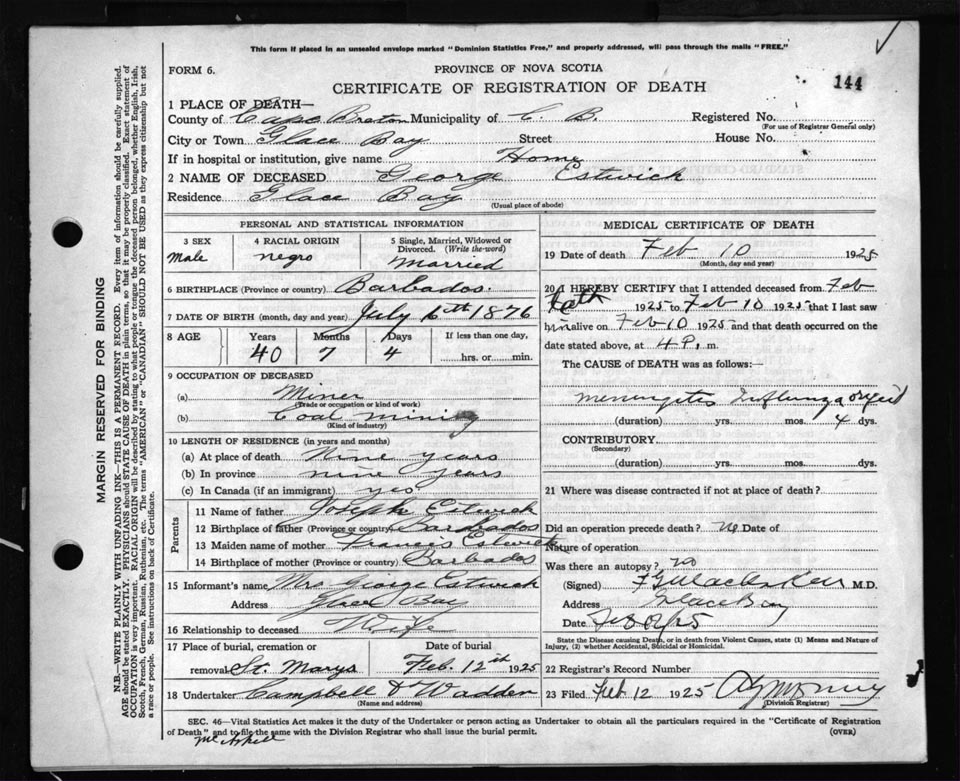 This form if placed in an unsealed envelope marked "Dominion Statistics Free," and properly addressed, will pass through the mails "FREE."
FORM 6.
PROVINCE OF NOVA SCOTIA
CERTIFICATE OF REGISTRATION OF DEATH
144
1 PLACE OF DEATH—
County of Cape Breton Municipality of C. B. Registered No.
(For use of Registrar General only)
City or Town Glace Bay Street House No.
If in hospital or institution, give name Home
2 NAME OF DECEASED George Estwick
Residence Glace Bay
(Usual place of abode)
PERSONAL AND STATISTICAL INFORMATION
3 SEX Male
4 RACIAL ORIGIN negro
5 Single, Married, Widowed or Divorced. (Write the word) Married
6 BIRTHPLACE (Province or country) Barbados.
7 DATE OF BIRTH (month, day and year) July 6th 1876
8 AGE Years Months Days If less than one day,
40 7 4 hrs. or min.
9 OCCUPATION OF DECEASED
(a) Miner
(Trade or occupation or kind of work)
(b) Coal mining
(Kind of industry)
10 LENGTH OF RESIDENCE (in years and months)
(a) At place of death Nine years
(b) In province nine years
(c) In Canada (if an immigrant) yes
Parents
11 Name of father Joseph Estwick
12 Birthplace of father (Province or country) Barbados
13 Maiden name of mother Francis Estwick
14 Birthplace of mother (Province or country) Barbados
15 Informant's name Mrs George Estwick
Address Glace Bay
16 Relationship to deceased Wife
17 Place of burial, cremation or removal St. Marys
Date of burial Feb. 12th 1925
18 Undertaker Campbell & Wadden
(Name and address)
MEDICAL CERTIFICATE OF DEATH
19 Date of death Feb 10 1925
(Month, day and year)
20 I HEREBY CERTIFY that I attended deceased from Feb
1925 to Feb 10 1925 that I last saw
him alive on Feb 10 1925 and that death occurred on
date stated above, at 4 P. m.
The CAUSE of DEATH was as follows:—
Meningites Influenza
(duration) yrs. mos. 4 dys.
CONTRIBUTORY.
(Secondary)
(duration) yrs. mos. dys.
21 Where was disease contracted if not at place of death?
Did an operation precede death? No Date of
Nature of operation
Was there an autopsy? no
(Signed) M.D.
Address Glace Bay
Date
State the Disease causing Death, or in death from Violent Causes, state (1) Means and Nature of
Injury, (2) whether Accidental, Suicidal or Homicidal.
22 Registrar's Record Number
23 Filed Feb 12 1925
(Division Registrar)
SEC. 46—Vital Statistics Act makes it the duty of the Undertaker or person acting as Undertaker to obtain all the particulars required in the "Certificate of Registration
of Death" and to file the same with the Division Registrar who shall issue the burial permit. (OVER)
MARGIN RESERVED FOR BINDING
N.B.—WRITE PLAINLY WITH UNFADING INK—THIS IS A PERMANENT RECORD. Every item of information should be carefully supplied.
AGE should be stated EXACTLY. PHYSICIANS should STATE CAUSE OF DEATH in plain terms, so that it may be properly classified. Exact statement of
OCCUPATION is very important. RACIAL ORIGIN will be described by stating to what people or tongue the deceased person belonged, whether English, Irish,
Scotch, French, German, Russian, Ruthenian, etc. The terms "AMERICAN" or "CANADIAN" SHOULD NOT BE USED as they express citizenship but not
a race or people. See instructions on back of Certificate.